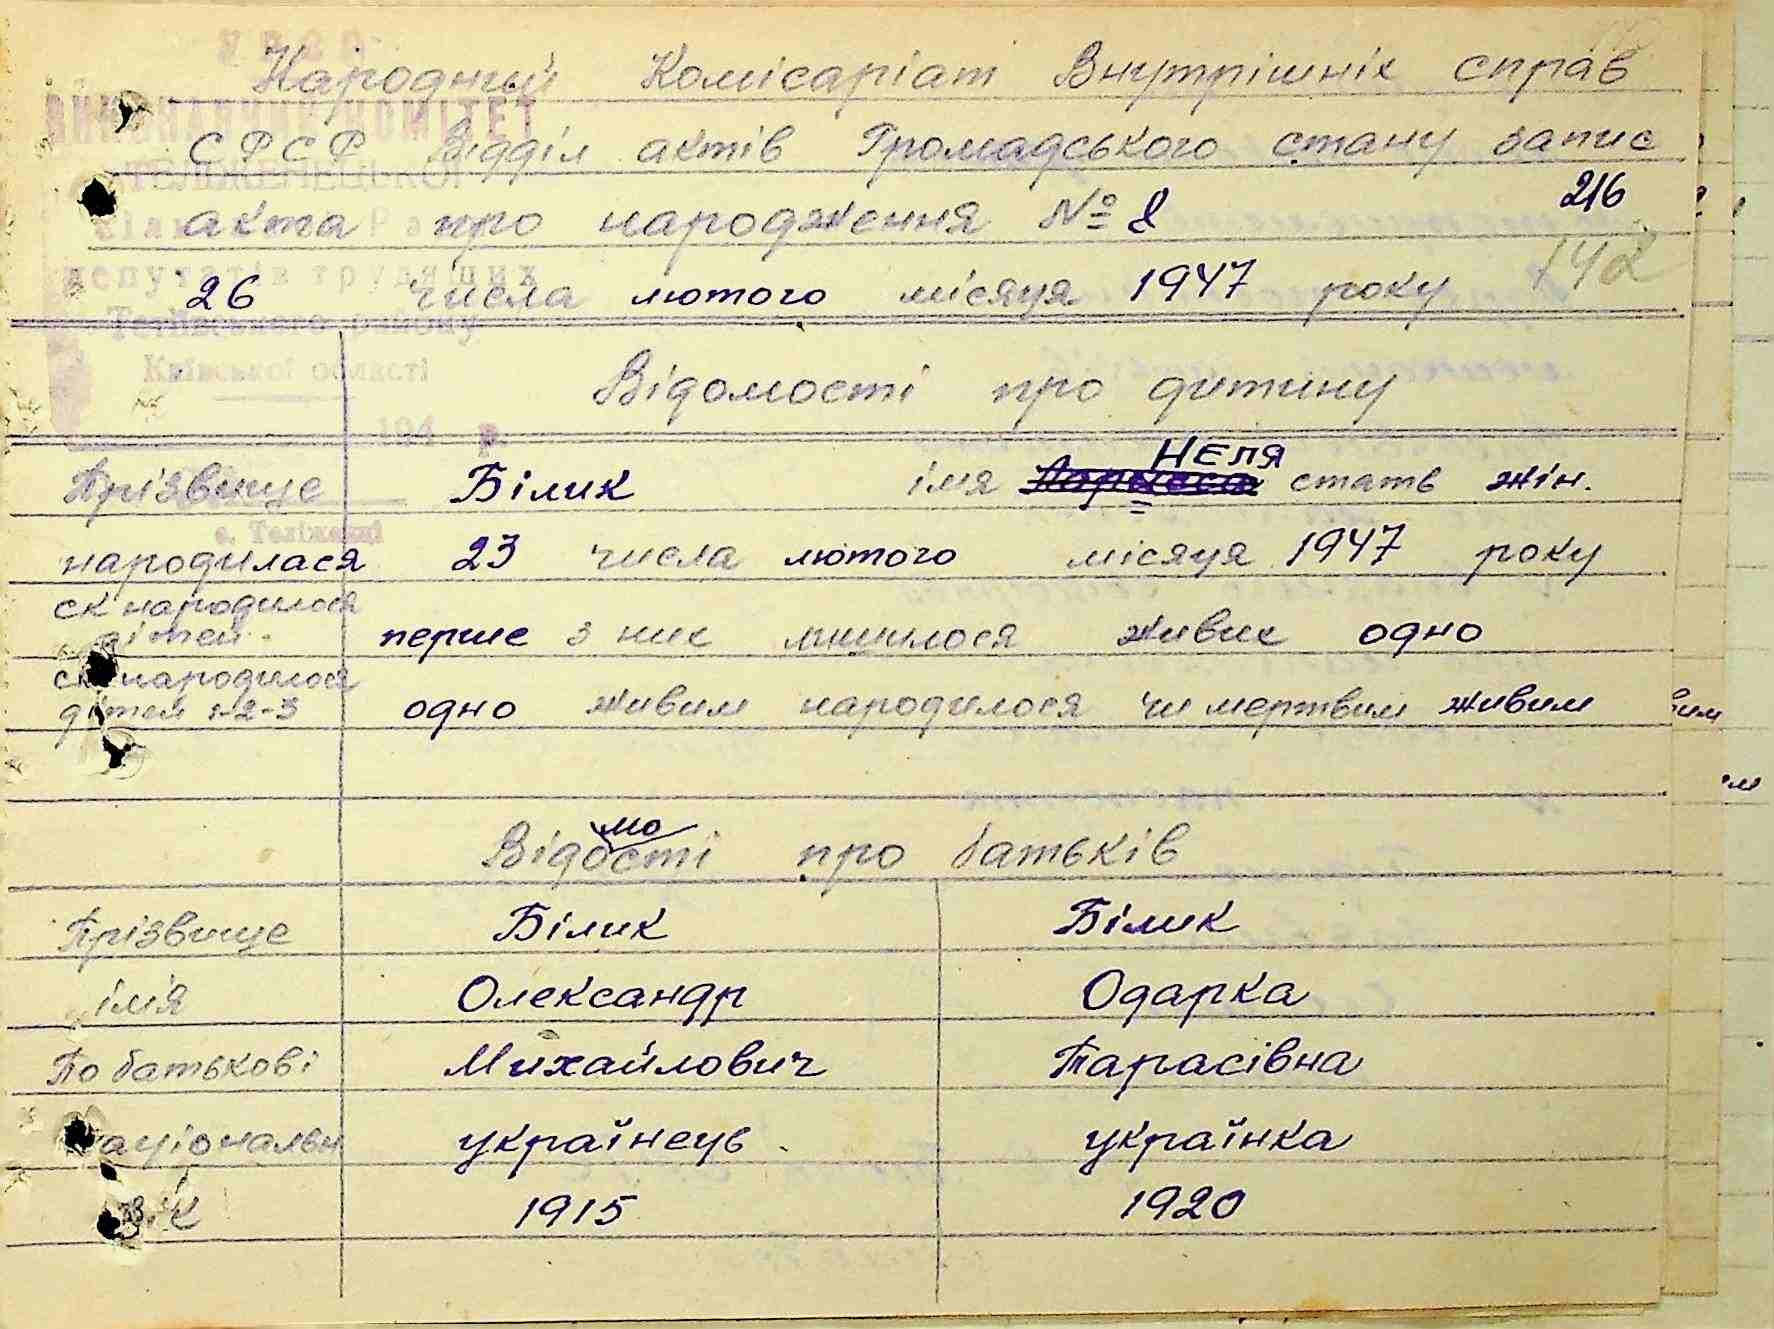 УРСР
ВИКОНАВЧИЙ КОМІТЕТ
ТЕЛІЖЕНЕЦЬКОЇ
депутатів трудящих
Тетіївського району
Київської області
194 р.
с. Теліженці
Народний Комісаріат Внутрішніх справ
СРСР Відділ актів Громадського стану запис
акта про народження № 8 216
26 числа лютого місяця 1947 року 142
Відомості про дитину
НЕЛЯ
Прізвище Білик імя Лорисса стать жін.
народилася 23 числа лютого місяця 1947 року
ск народилося
дітей перше з них лишилося живих одно
ск народилося
дітей 1-2-3 одно живим народилося чи мертвим живим
мо
Відості про батьків
Прізвище Білик Білик
імя Олександр Одарка
По батькові Михайлович Тарасівна
національн українець українка
вік 1915 1920